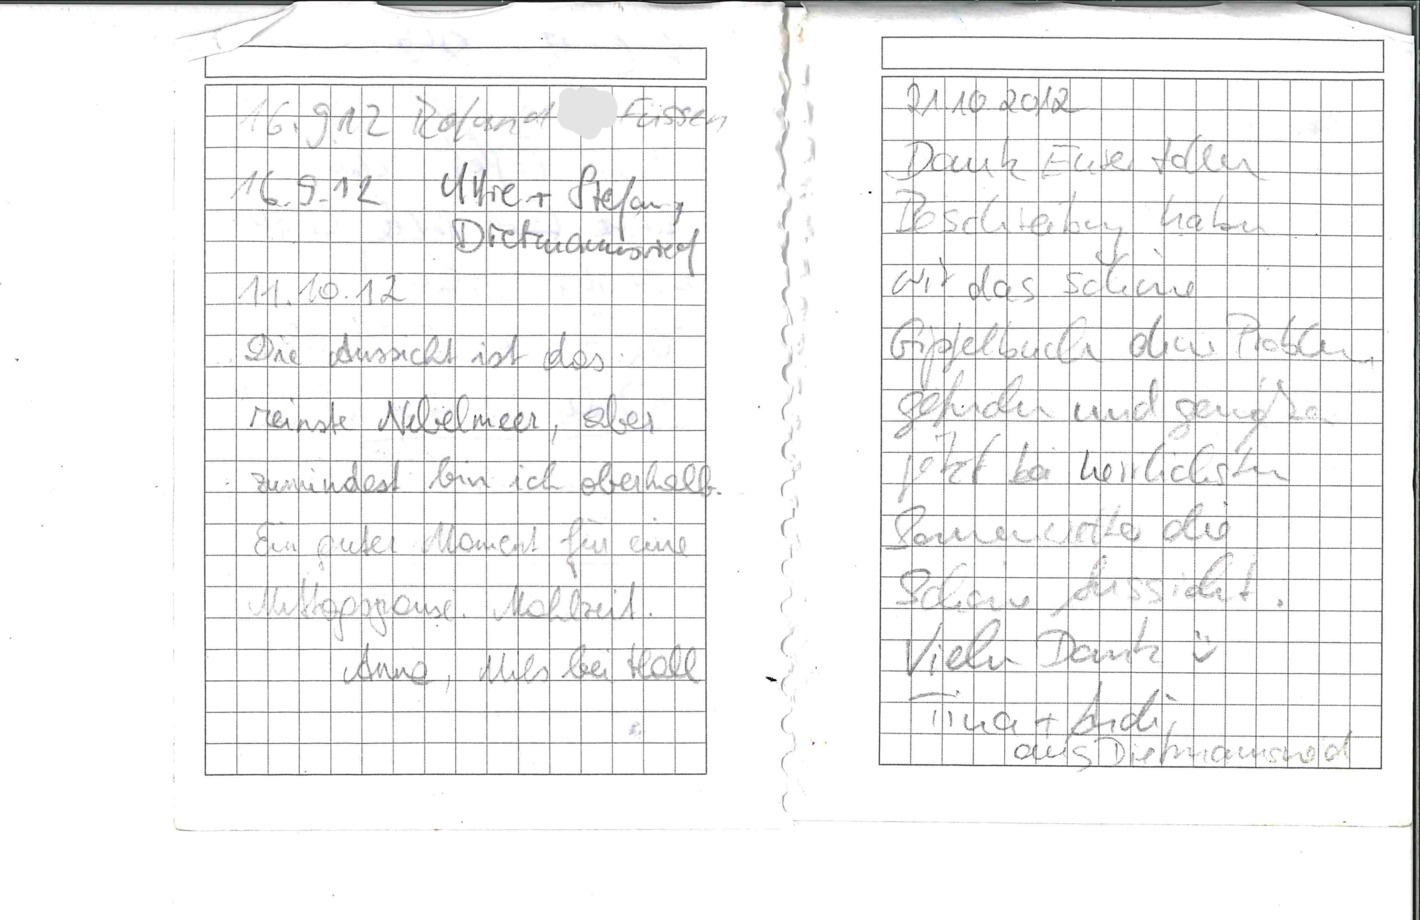 16.9.12 Roland Füssen
16.9.12 + Stefan,
Dietmannsried
11.10.12
Die Aussicht ist das
reinste Nebelmeer, aber
zumindest bin ich oberhalb.
Ein guter Moment für eine
Mittagspause. Mahlzeit.
Anna, bei Hall
21.10.2012
Dank Eurer tollen
Beschreibung haben
wir das schöne
Gipfelbuch ohne Problem
gefunden und genießen
jetzt bei herrlichsten
die
Schöne Aussicht.
Vielen Dank
Tina + Andi,
aus Dietmannsried